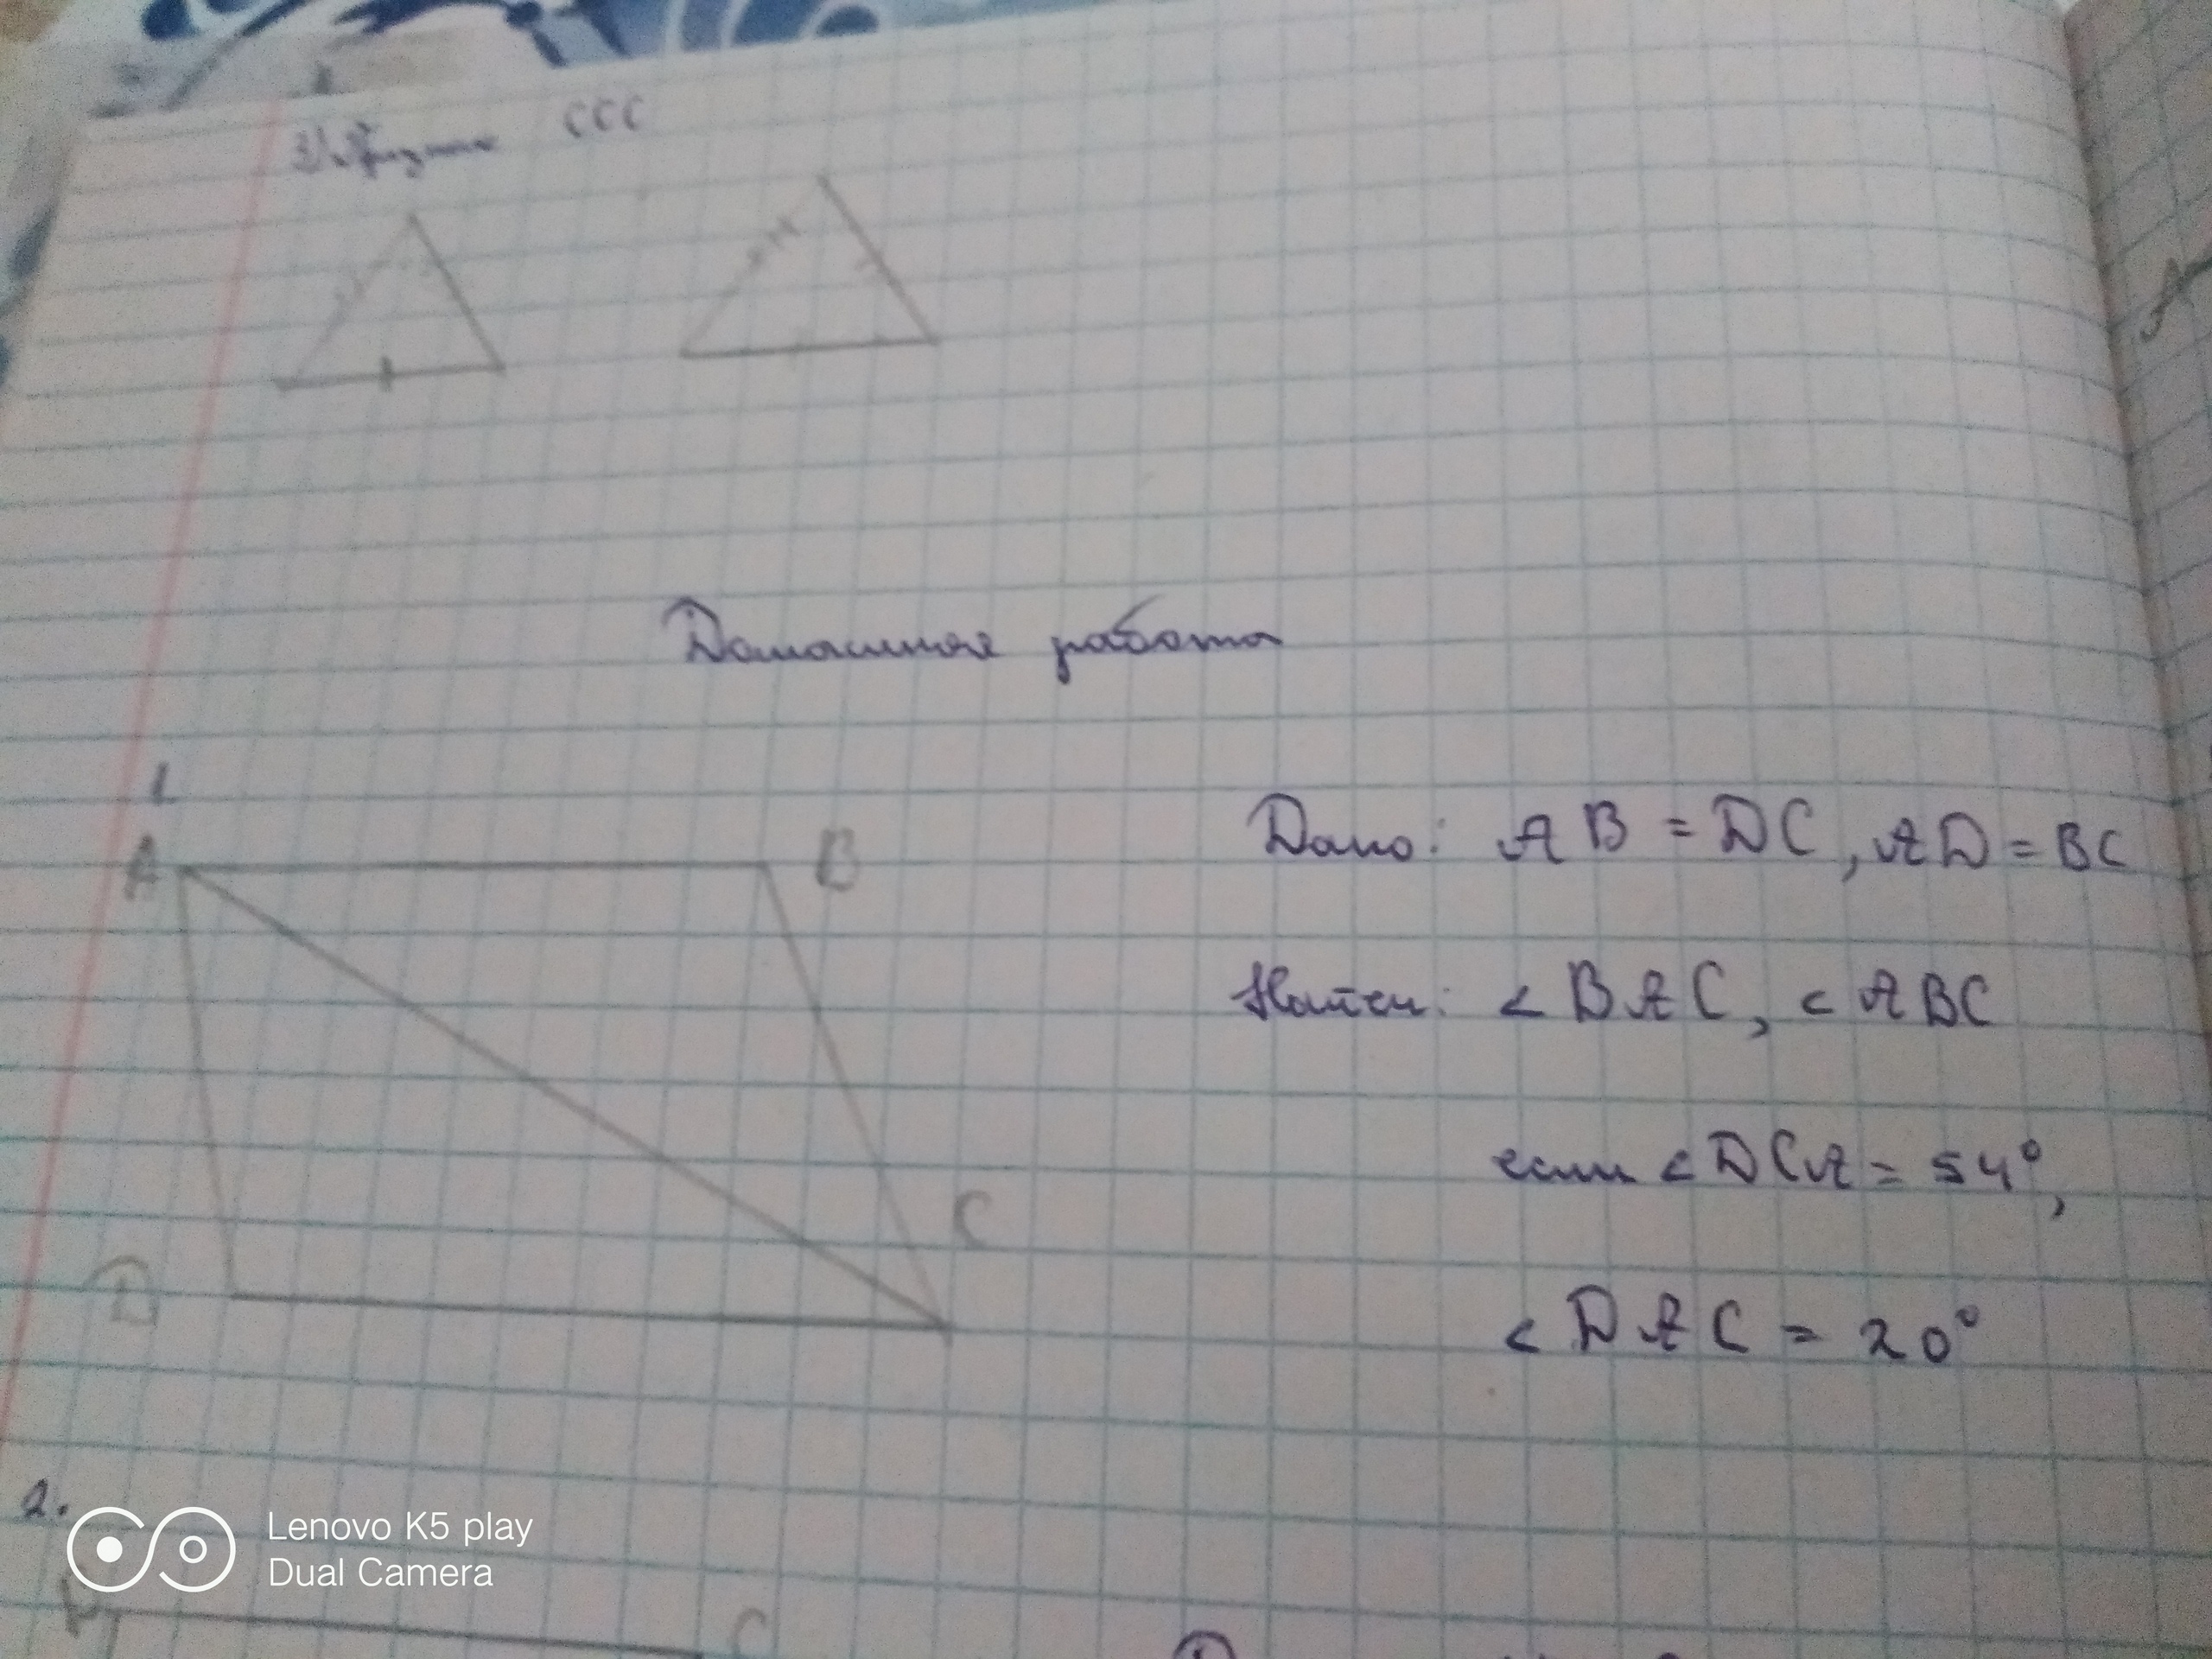 3) Признак ССС
Домашняя работа
1
A B
Дано: AB = DC, AD = BC
Найти: < BAC, < ABC
если < DCA = 54°,
C
D
< DAC = 20°
2.
Lenovo K5 play
Dual Camera
C